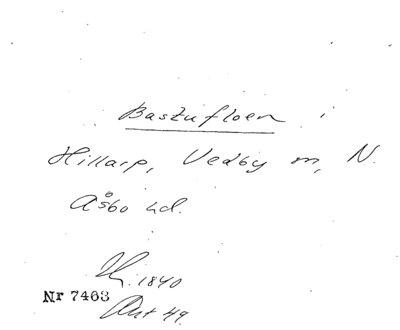 Bastufloen i
Hillarp, Vedby m, N.
Åsbo hd.
1840
Nr 7463
Akt 49.